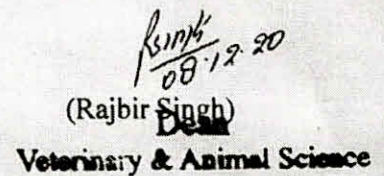 08.12.20
(Rajbir Singh)
Dean
Veterinary & Animal Science